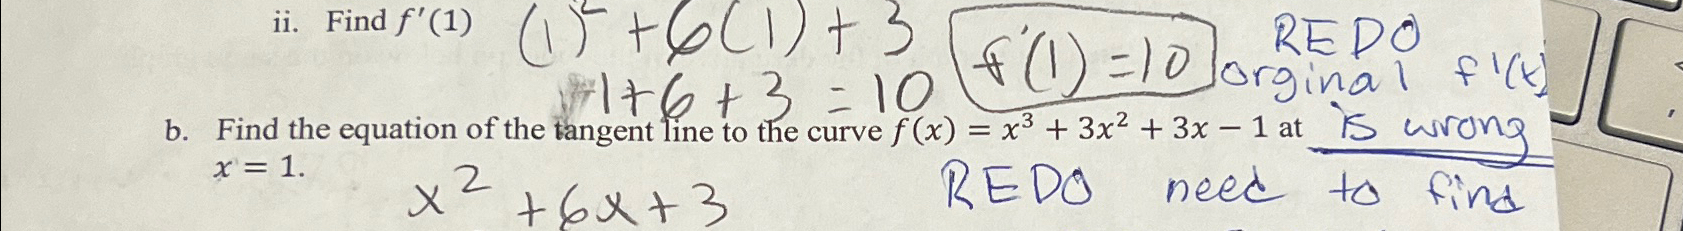 ii. Find f'(1) (1)² + 6(1) + 3 f'(1) = 10 REDO
1 + 6 + 3 = 10 orginal f'(x)
b. Find the equation of the tangent line to the curve f(x) = x³ + 3x² + 3x − 1 at is wrong
x = 1.
x² + 6x + 3 REDO need to find